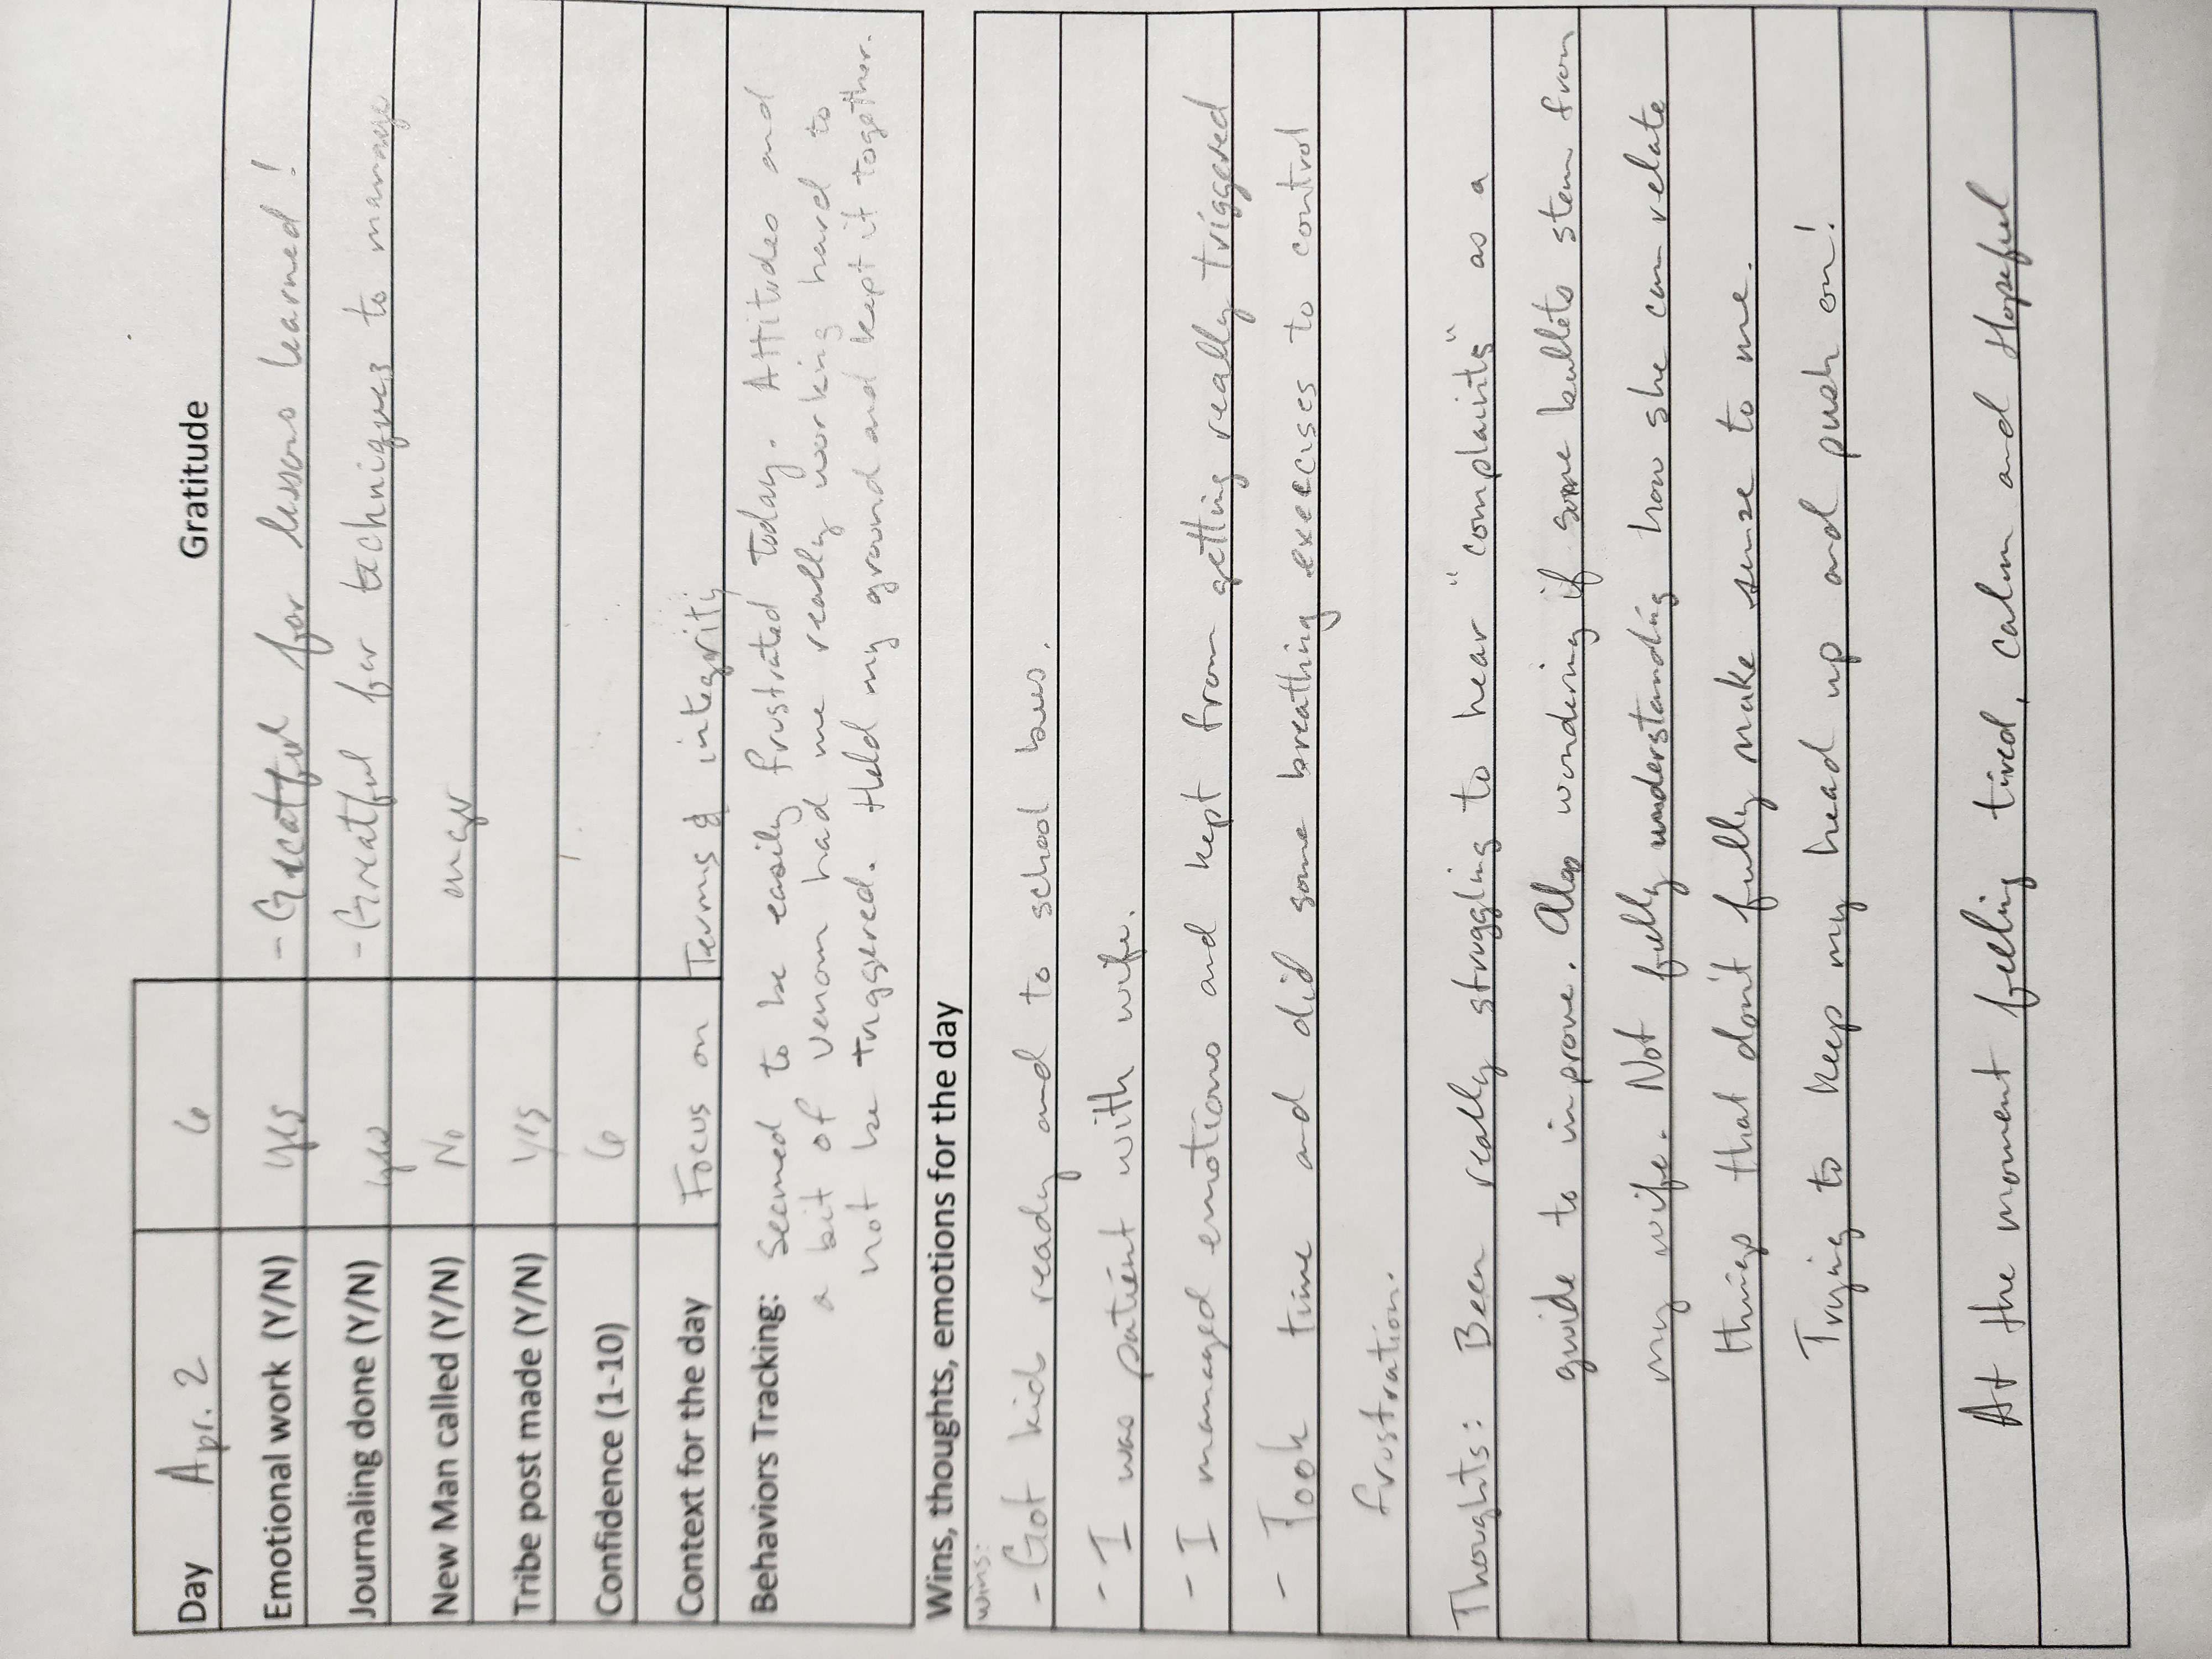 Gratitude
Day Apr. 2 6
Emotional work (Y/N) yes - Greatful for lessons learned!
Journaling done (Y/N) yes - Greatful for techniques to manage
New Man called (Y/N) No anger
Tribe post made (Y/N) yes
Confidence (1-10) 6
Context for the day Focus on Terms & integrity
Behaviors Tracking: Seemed to be easily frustrated today. Attitudes and
a bit of venom had me really working hard to
not be triggered. Held my ground and kept it together.
Wins, thoughts, emotions for the day
wins:
- Got kids ready and to school bus.
- I was patient with wife.
- I managed emotions and kept from getting really triggered
- Took time and did some breathing execises to control
frustration.
Thoughts: Been really struggling to hear "complaints" as a
guide to inprove. Also wondering if some bullets stem from
my wife. Not fully understandig how she can relate
things that don't fully make sense to me.
Trying to keep my head up and push on!
At the moment feeling tired, calm and Hopeful